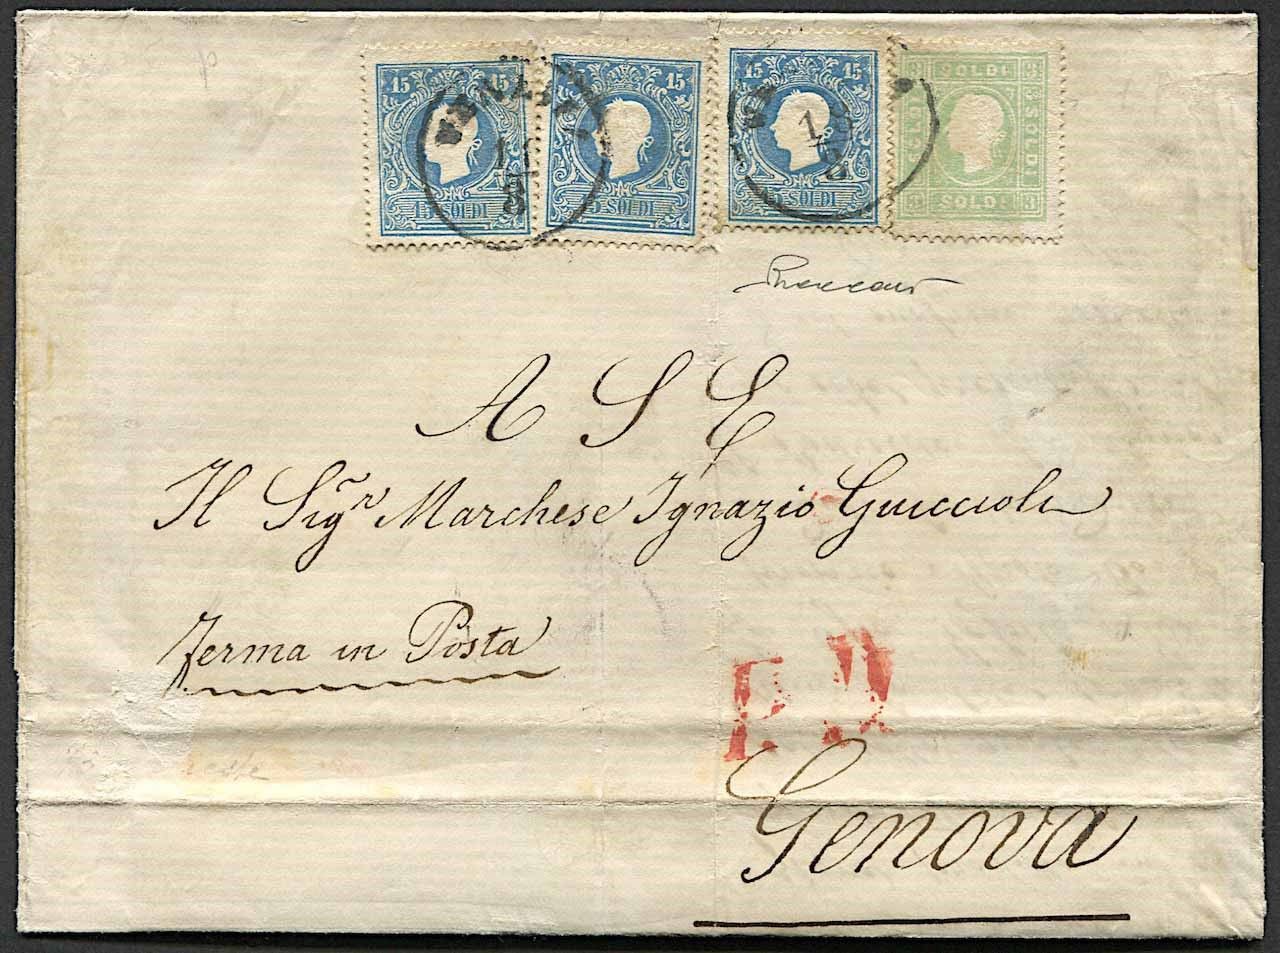 15 15 15 15 15 15 3 SOLDI 3
SOLDI SOLDI
15 SOLDI 15 SOLDI 15 SOLDI 3 SOLDI 3
A S E
Il Sigr Marchese Ignazio Guiccioli
ferma in Posta
P. D.
Genova